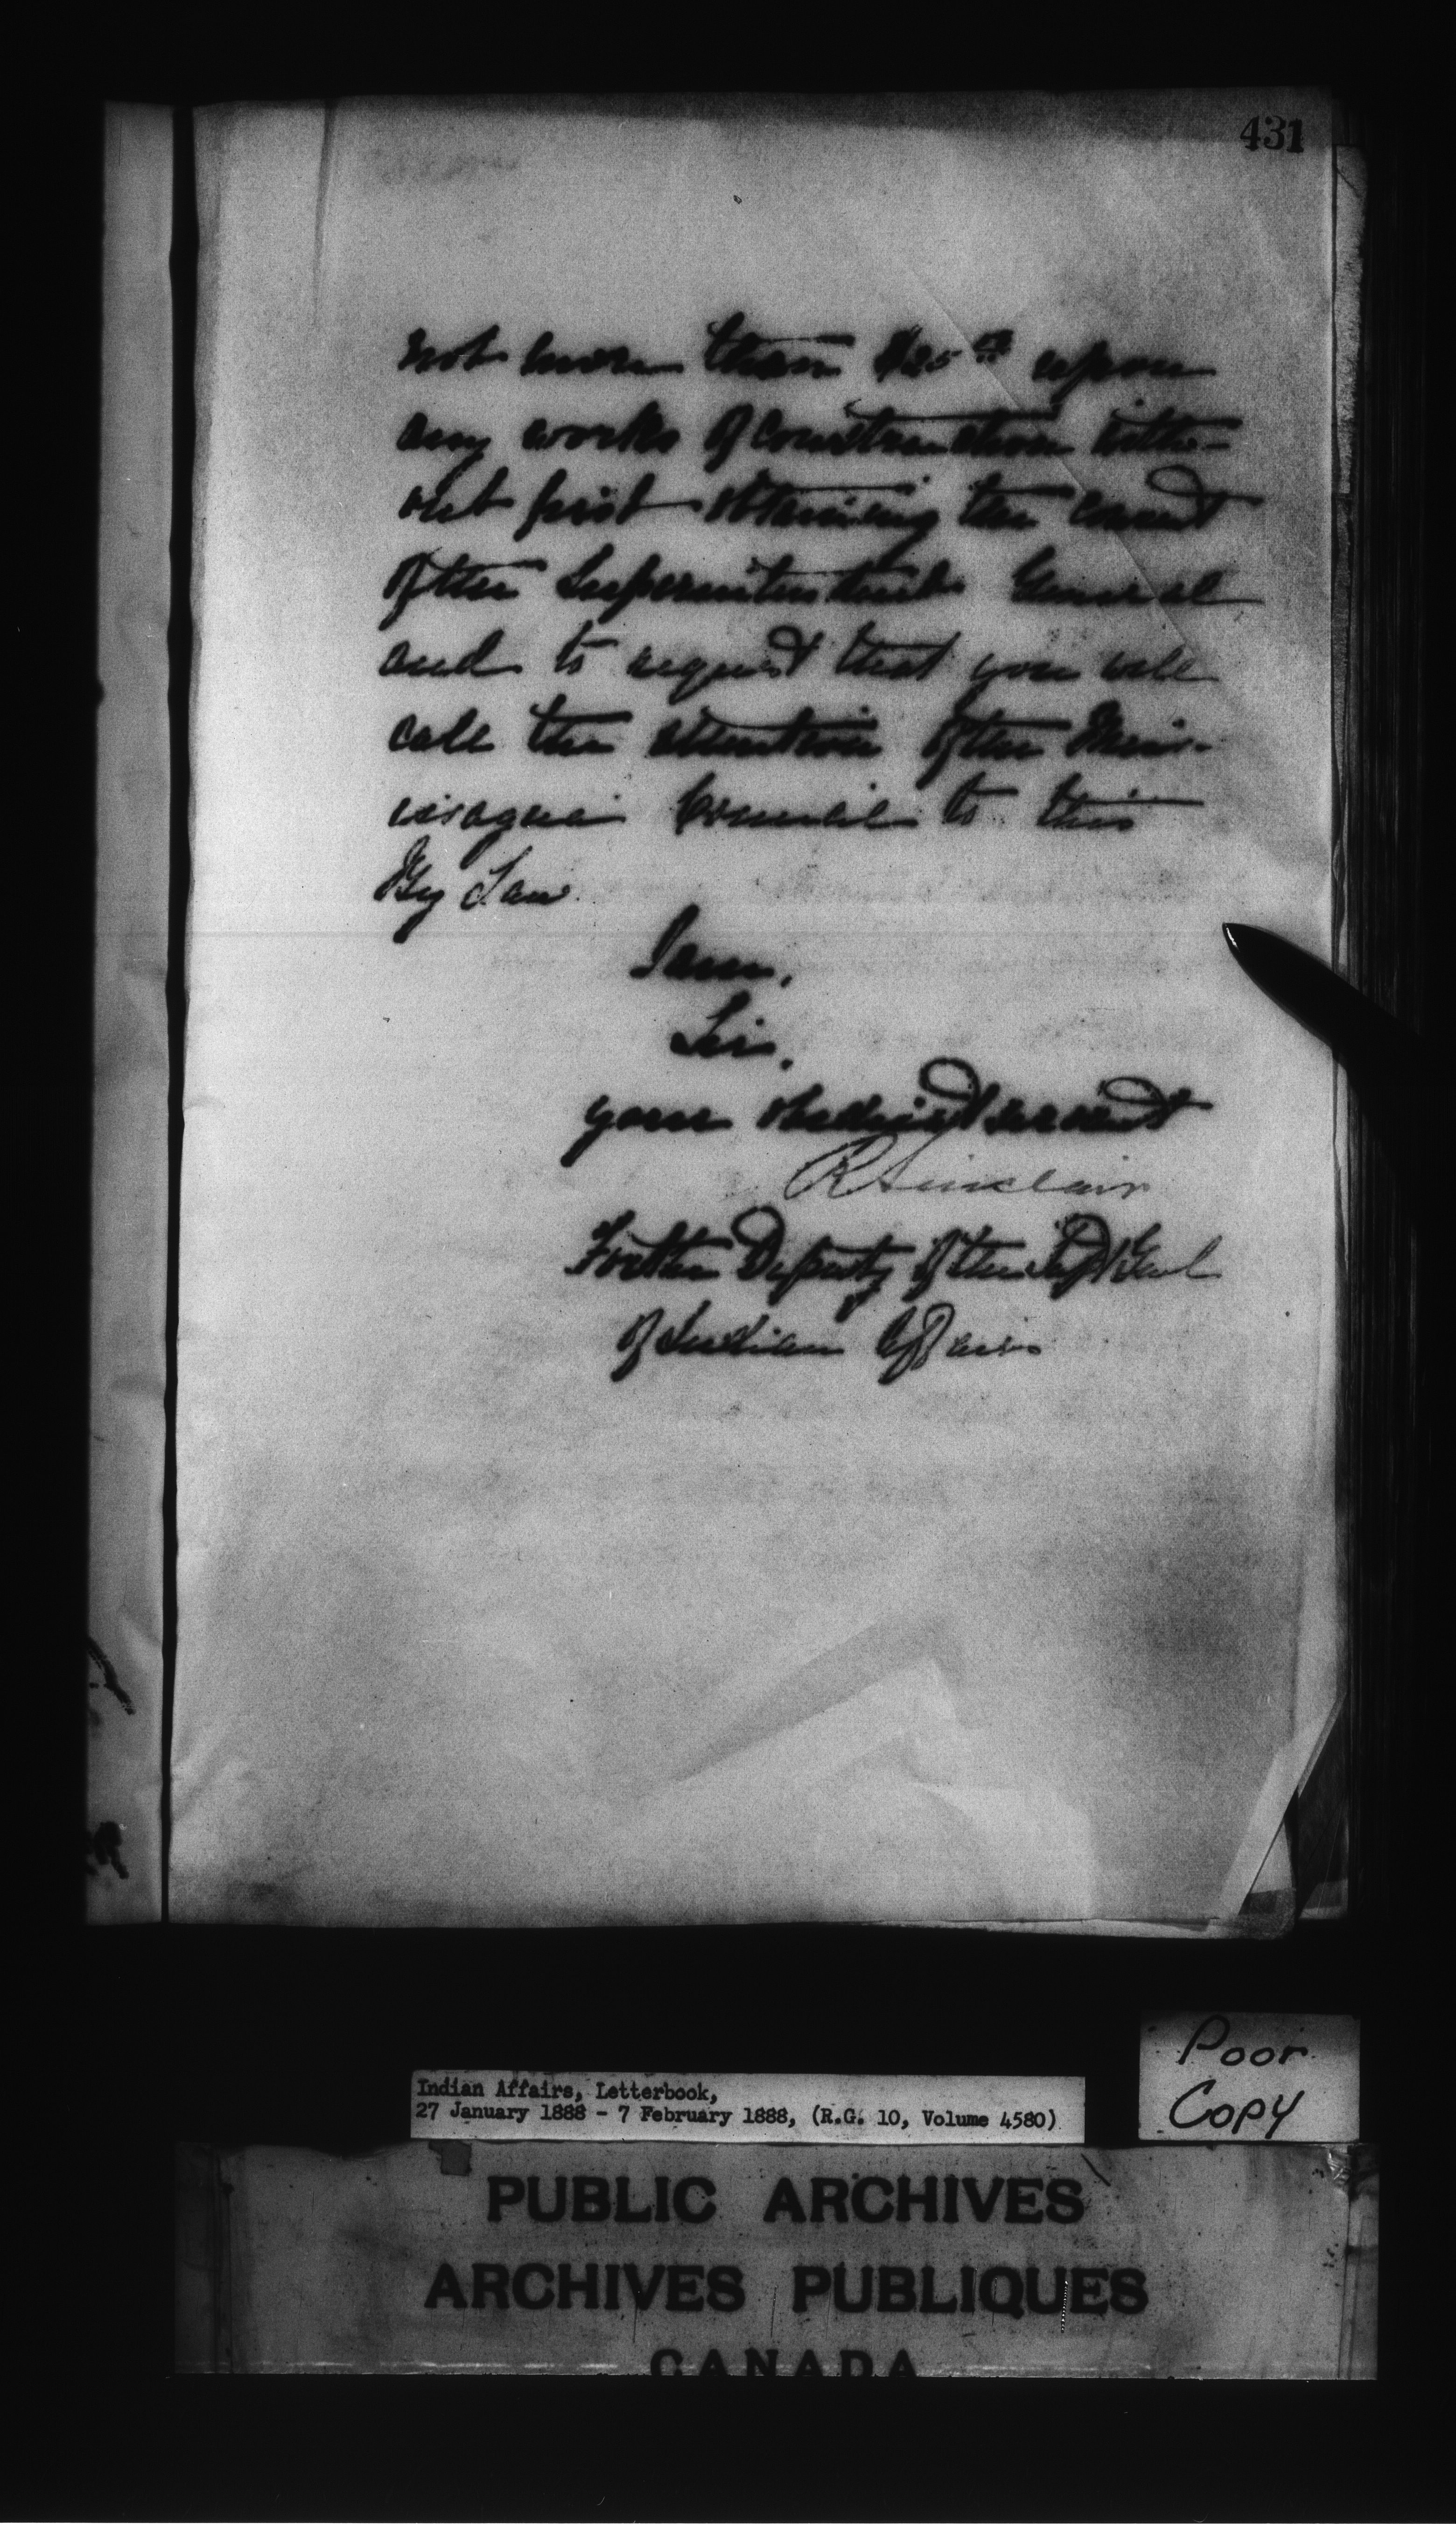 431
not more than $25.00 upon
any works of construction with-
out first obtaining the consent
of the Superintendent General
and to request that you will
call the attention of the Miss-
issagua Council to this
By Law
I am,
Sir,
your obedient servant
R Sinclair
For the Deputy of the Supt Genl
of Indian Affairs
Poor
Copy
Indian Affairs, Letterbook,
27 January 1888 - 7 February 1888, (R.G. 10, Volume 4580)
PUBLIC ARCHIVES
ARCHIVES PUBLIQUES
CANADA